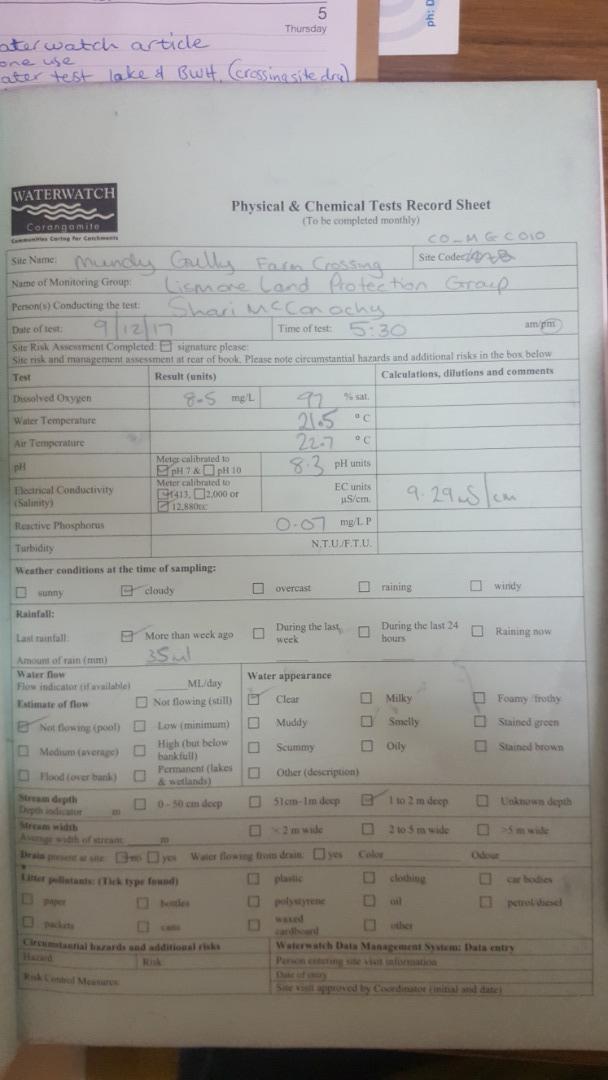 5
Thursday
ater watch article
one use
ater test lake & BWH, (crossing site dry)
ph: 0
WATERWATCH
Corangamite
Communities Caring For Catchments
Physical & Chemical Tests Record Sheet
(To be completed monthly)
CO_MGC010
Site Name: Mundy Gully Farm Crossing Site Code:
Name of Monitoring Group: Lismore Land Protection Group
Person(s) Conducting the test: Shari McConachy
Date of test: 9/12/17 Time of test: 5:30 am/pm
Site Risk Assessment Completed: signature please:
Site risk and management assessment at rear of book. Please note circumstantial hazards and additional risks in the box below
Test Result (units) Calculations, dilutions and comments
Dissolved Oxygen 8.5 mg/L 97 % sat.
Water Temperature 21.5 °C
Air Temperature 22.7 °C
pH Meter calibrated to pH 7 & pH 10 8.3 pH units
Electrical Conductivity (Salinity) Meter calibrated to 1413, 2,000 or 12,880EC EC units µS/cm. 9.29 mS/cm
Reactive Phosphorus 0.07 mg/L P
Turbidity N.T.U./F.T.U.
Weather conditions at the time of sampling:
sunny cloudy overcast raining windy
Rainfall:
Last rainfall: More than week ago During the last week During the last 24 hours Raining now
Amount of rain (mm) 35ml
Water flow Water appearance
Flow indicator (if available) ML/day
Estimate of flow Not flowing (still) Clear Milky Foamy/frothy
Not flowing (pool) Low (minimum) Muddy Smelly Stained green
Medium (average) High (but below bankfull) Scummy Oily Stained brown
Flood (over bank) Permanent (lakes & wetlands) Other (description)
Stream depth
Depth indicator m 0 - 50 cm deep 51cm-1m deep 1 to 2 m deep Unknown depth
Stream width
Average width of stream: m < 2 m wide 2 to 5 m wide >5 m wide
Drain present at site: no yes Water flowing from drain: yes Color Odour
Litter pollutants: (Tick type found) plastic clothing car bodies
paper bottles polystyrene oil petrol/diesel
packets cans waxed cardboard other
Circumstantial hazards and additional risks Waterwatch Data Management System: Data entry
Hazard Risk Person entering site visit information
Date of entry
Risk Control Measures: Site visit approved by Coordinator (initial and date)